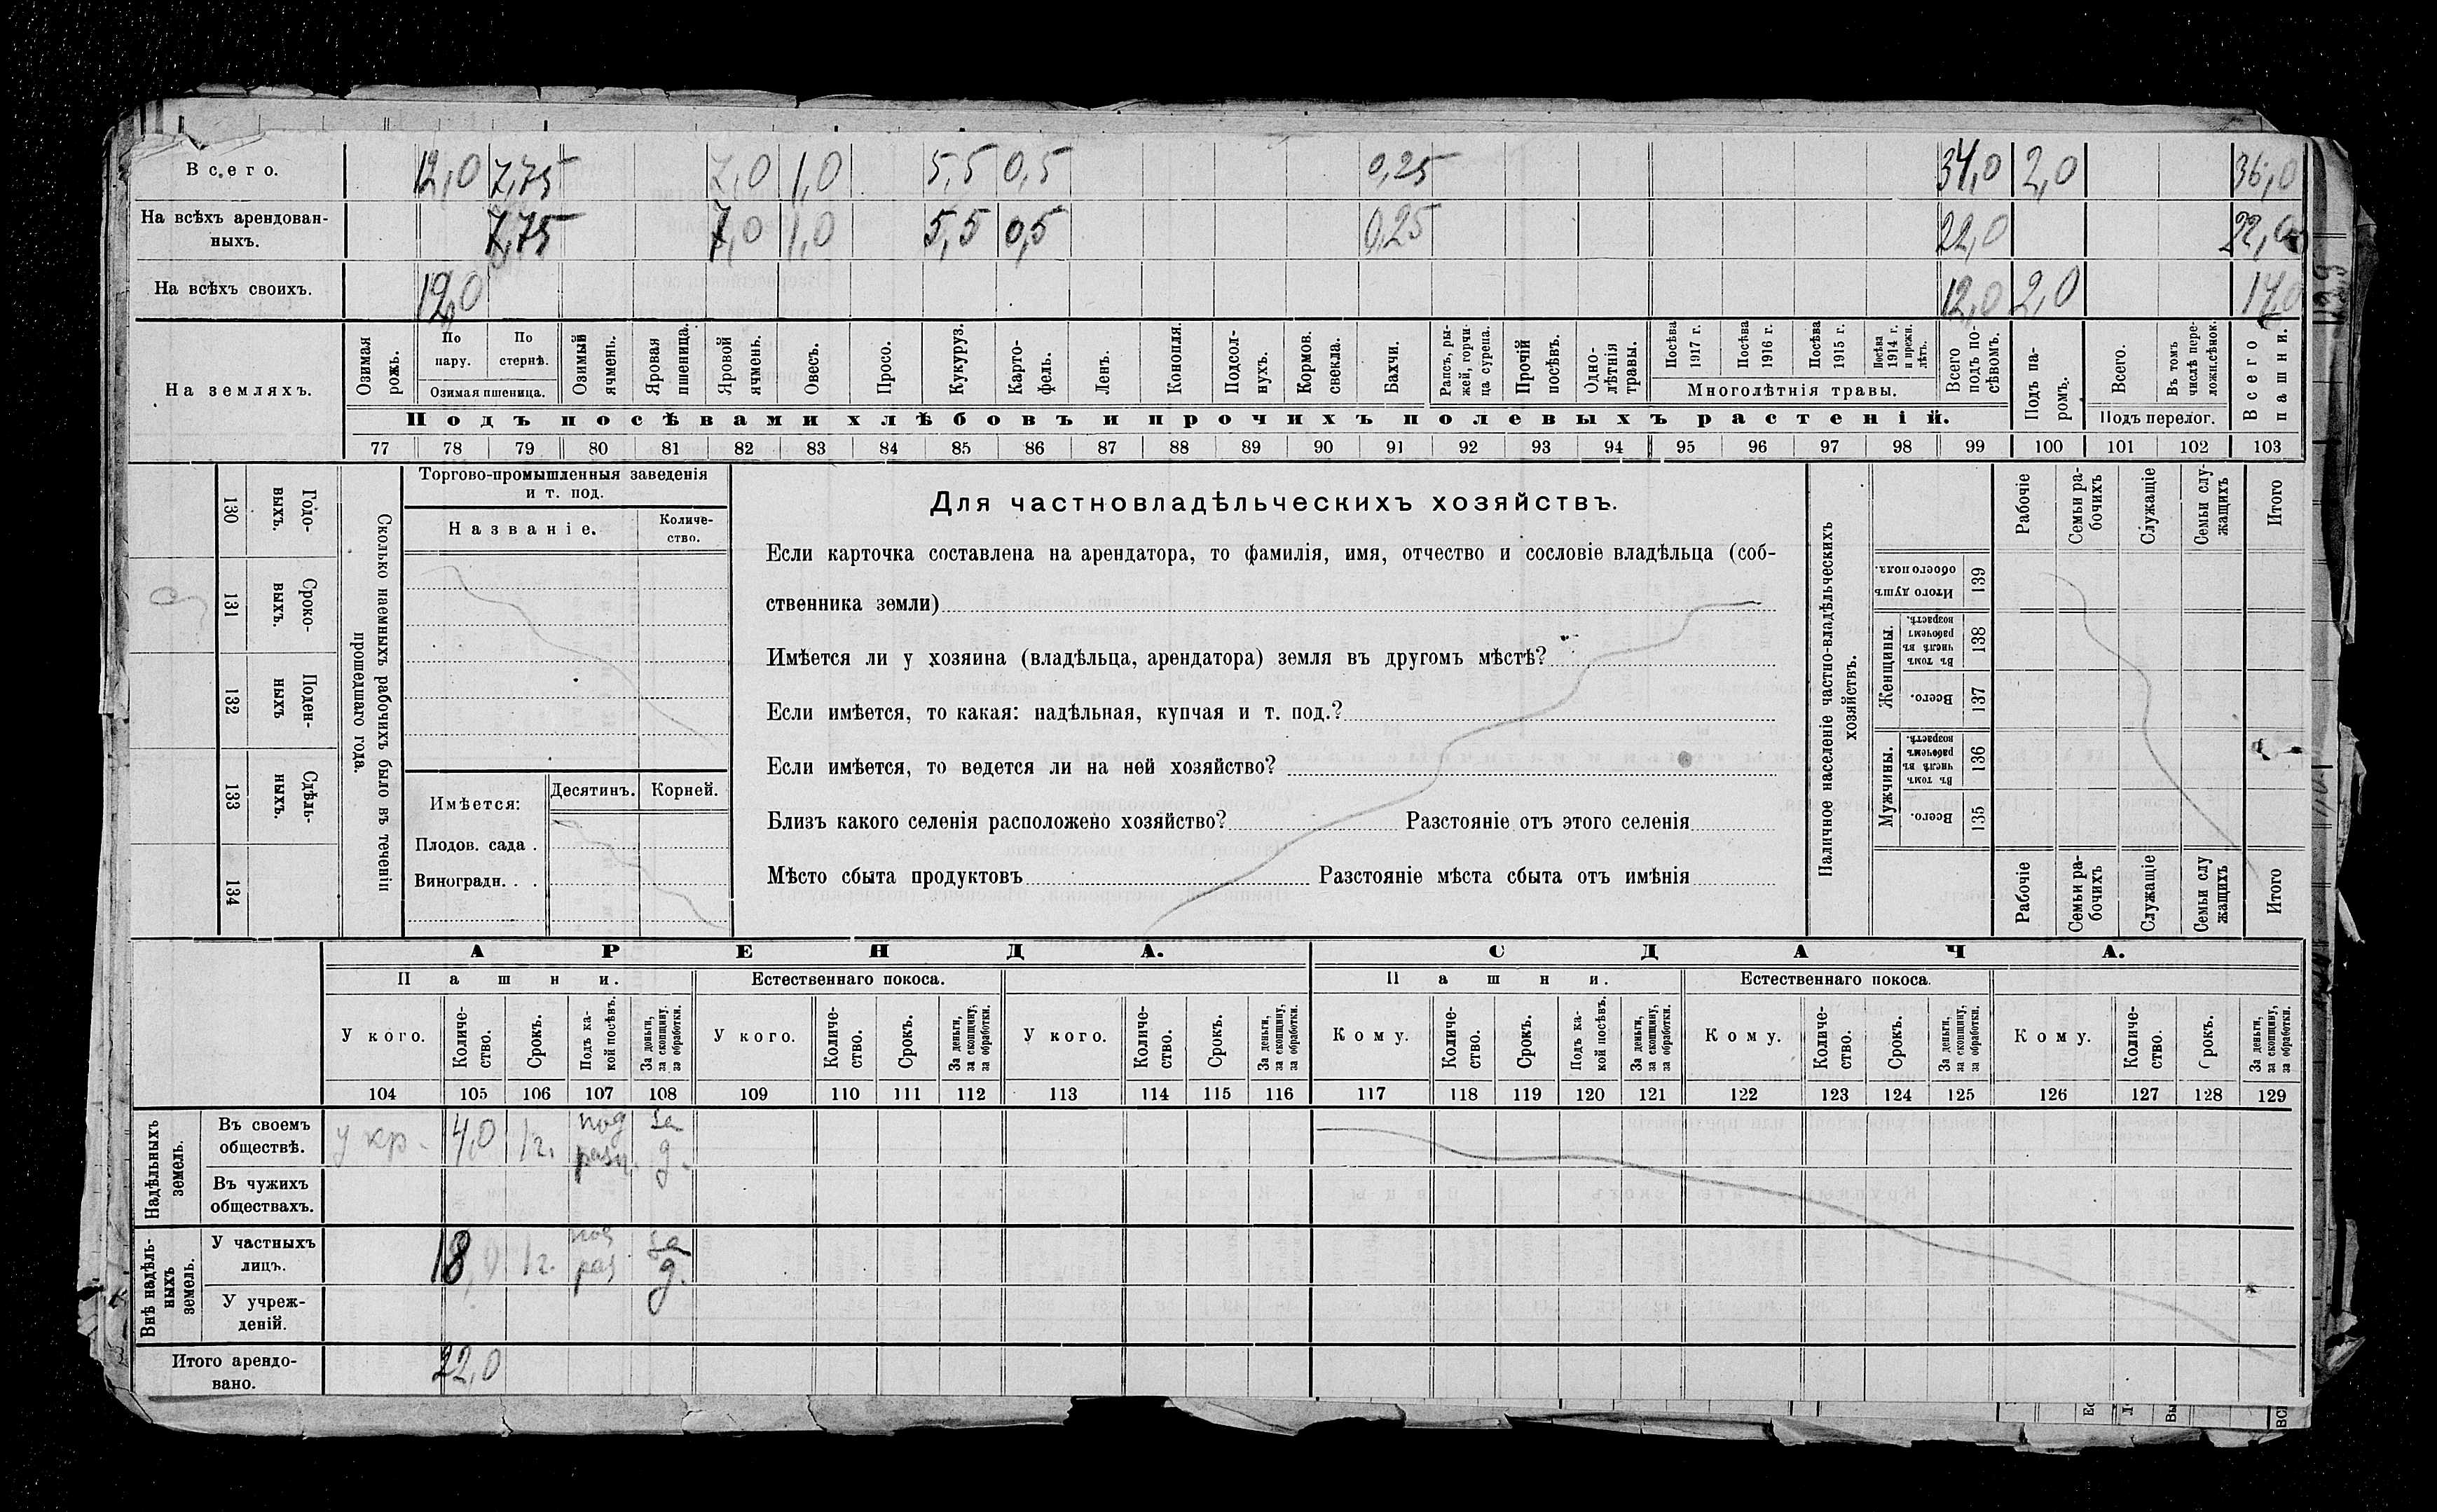 Всего. 12,0 7,75 7,0 1,0 5,5 0,5 0,25 34,0 2,0 36,0
На всѣхъ арендован-
ныхъ. 7,75 7,0 1,0 5,5 0,5 0,25 22,0 22,0
На всѣхъ своихъ. 12,0 12,0 2,0 14,0
На земляхъ.
Озимая рожь.
По пару.
По стернѣ.
Озимая пшеница.
Озимый ячмень.
Яровая пшеница.
Яровой ячмень.
Овесъ.
Просо.
Кукуруз.
Карто-
фель.
Ленъ.
Конопля.
Подсол-
нухъ.
Кормов. свекла.
Бахчи.
Рапсъ, ры-
жей, горчи-
ца сурепа.
Прочій посѣвъ.
Одно-
лѣтнія травы.
Посѣва 1917 г.
Посѣва 1916 г.
Посѣва 1915 г.
Посѣва 1914 г. и прежн. лѣтъ.
Многолѣтнія травы.
Всего подъ по-
сѣвомъ.
Подъ па-
ромъ.
Всего.
Въ томъ числѣ пере-
ложн.сѣнок.
Подъ перелог.
Всего пашни.
Подъ посѣвами хлѣбовъ и прочихъ полевыхъ растеній.
77 78 79 80 81 82 83 84 85 86 87 88 89 90 91 92 93 94 95 96 97 98 99 100 101 102 103
130 Годо-
выхъ.
131 Сроко-
выхъ.
132 Поден-
ныхъ
133 Сдѣль-
ныхъ.
134
Сколько наемныхъ рабочихъ было въ теченіи
прошедшаго года.
Торгово-промышленныя заведенія
и т. под.
Названіе. Количе-
ство.
Имѣется: Десятинъ. Корней.
Плодов. сада .
Виноградн. . .
Для частновладѣльческихъ хозяйствъ.
Если карточка составлена на арендатора, то фамилія, имя, отчество и сословіе владѣльца (соб-
ственника земли)
Имѣется ли у хозяина (владѣльца, арендатора) земля въ другомъ мѣстѣ?
Если имѣется, то какая: надѣльная, купчая и т. под.?
Если имѣется, то ведется ли на ней хозяйство?
Близъ какого селенія расположено хозяйство? Разстояніе отъ этого селенія
Мѣсто сбыта продуктовъ Разстояніе мѣста сбыта отъ имѣнія
Наличное населеніе частно-владѣльческихъ
хозяйствъ.
Рабочіе
Семьи ра-
бочихъ
Служащіе
Семьи слу-
жащихъ
Итого
Итого душъ обоего пола. 139
Женщины.
Въ томъ числѣ въ рабочемъ возрастѣ. 138
Всего. 137
Мужчины.
Въ томъ числѣ въ рабочемъ возрастѣ. 136
Всего. 135
Рабочіе
Семьи ра-
бочихъ
Служащіе
Семьи слу
жащихъ
Итого
АРЕНДА. СДАЧА.
Пашни. Естественнаго покоса. Пашни. Естественнаго покоса.
У кого. Количе-
ство. Срокъ. Подъ ка-
кой посѣвъ. За деньги, за скопщину, за обработки.
У кого. Количе-
ство. Срокъ. За деньги, за скопщину, за обработки.
У кого. Количе-
ство. Срокъ. За деньги, за скопщину, за обработки.
Кому. Количе-
ство. Срокъ. Подъ ка-
кой посѣвъ. За деньги, за скопщину, за обработки.
Кому. Количе-
ство. Срокъ. За деньги, за скопщину, за обработки.
Кому. Количе-
ство. Срокъ. За деньги, за скопщину, за обработки.
104 105 106 107 108 109 110 111 112 113 114 115 116 117 118 119 120 121 122 123 124 125 126 127 128 129
Надѣльныхъ земель.
Въ своемъ
обществѣ. у кр. 4,0 1 г. под разн. за д.
Въ чужихъ
обществахъ.
Внѣ надѣль-
ныхъ земель.
У частныхъ
лицъ. 18,0 1 г. под раз за д.
У учреж-
деній.
Итого арендо-
вано. 22,0